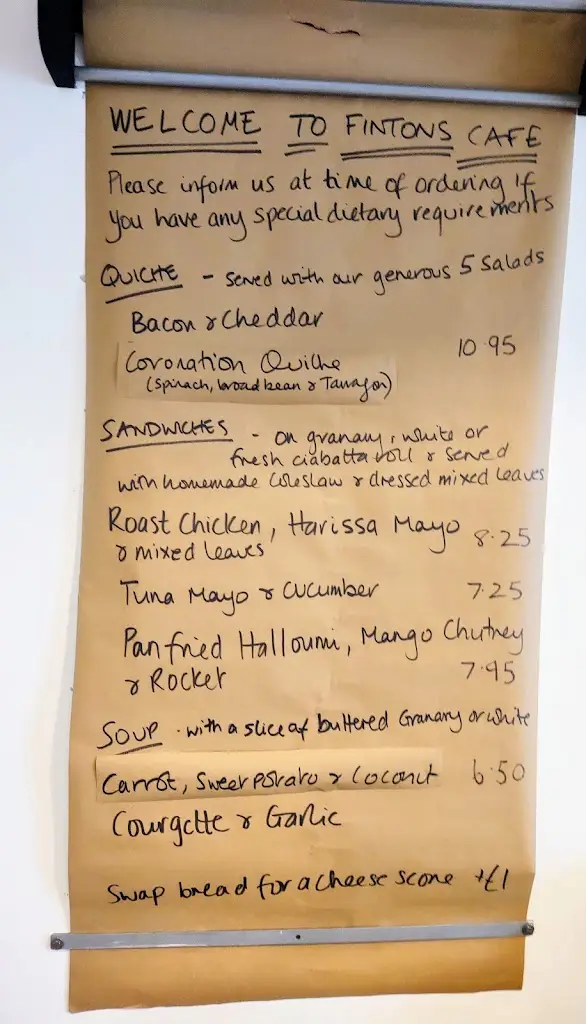 WELCOME TO FINTONS CAFE
Please inform us at time of ordering if
you have any special dietary requirements
QUICHE - Served with our generous 5 Salads
Bacon & Cheddar
10.95
Coronation Quiche
(Spinach, broad bean & Tarragon)
SANDWICHES - on granary, white or
fresh ciabatta roll & served
with homemade Coleslaw & dressed mixed leaves
Roast Chicken, Harissa Mayo
& mixed leaves 8.25
Tuna Mayo & Cucumber 7.25
Pan fried Halloumi, Mango Chutney
& Rocket 7.95
SOUP - with a slice of buttered Granary or white
Carrot, Sweet potato & Coconut 6.50
Courgette & Garlic
Swap bread for a cheese scone +£1